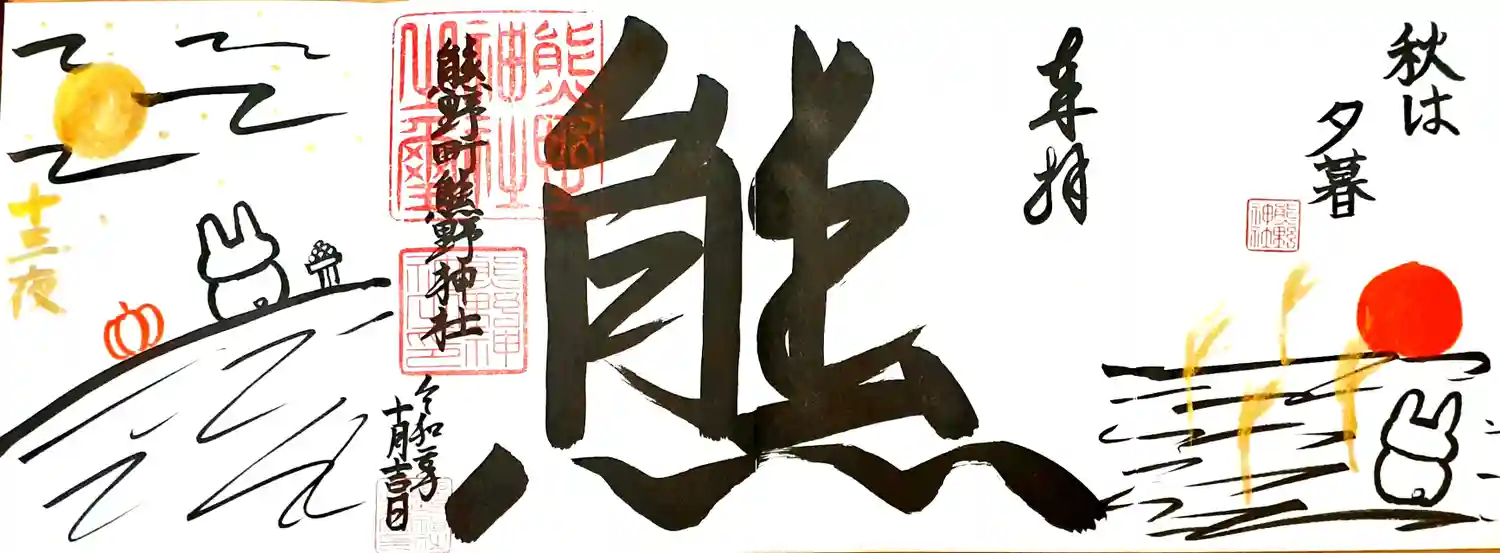 秋は
夕暮
熊野
神社
奉拝
熊
熊野町熊野神社
令和二年
十月吉日
十三夜